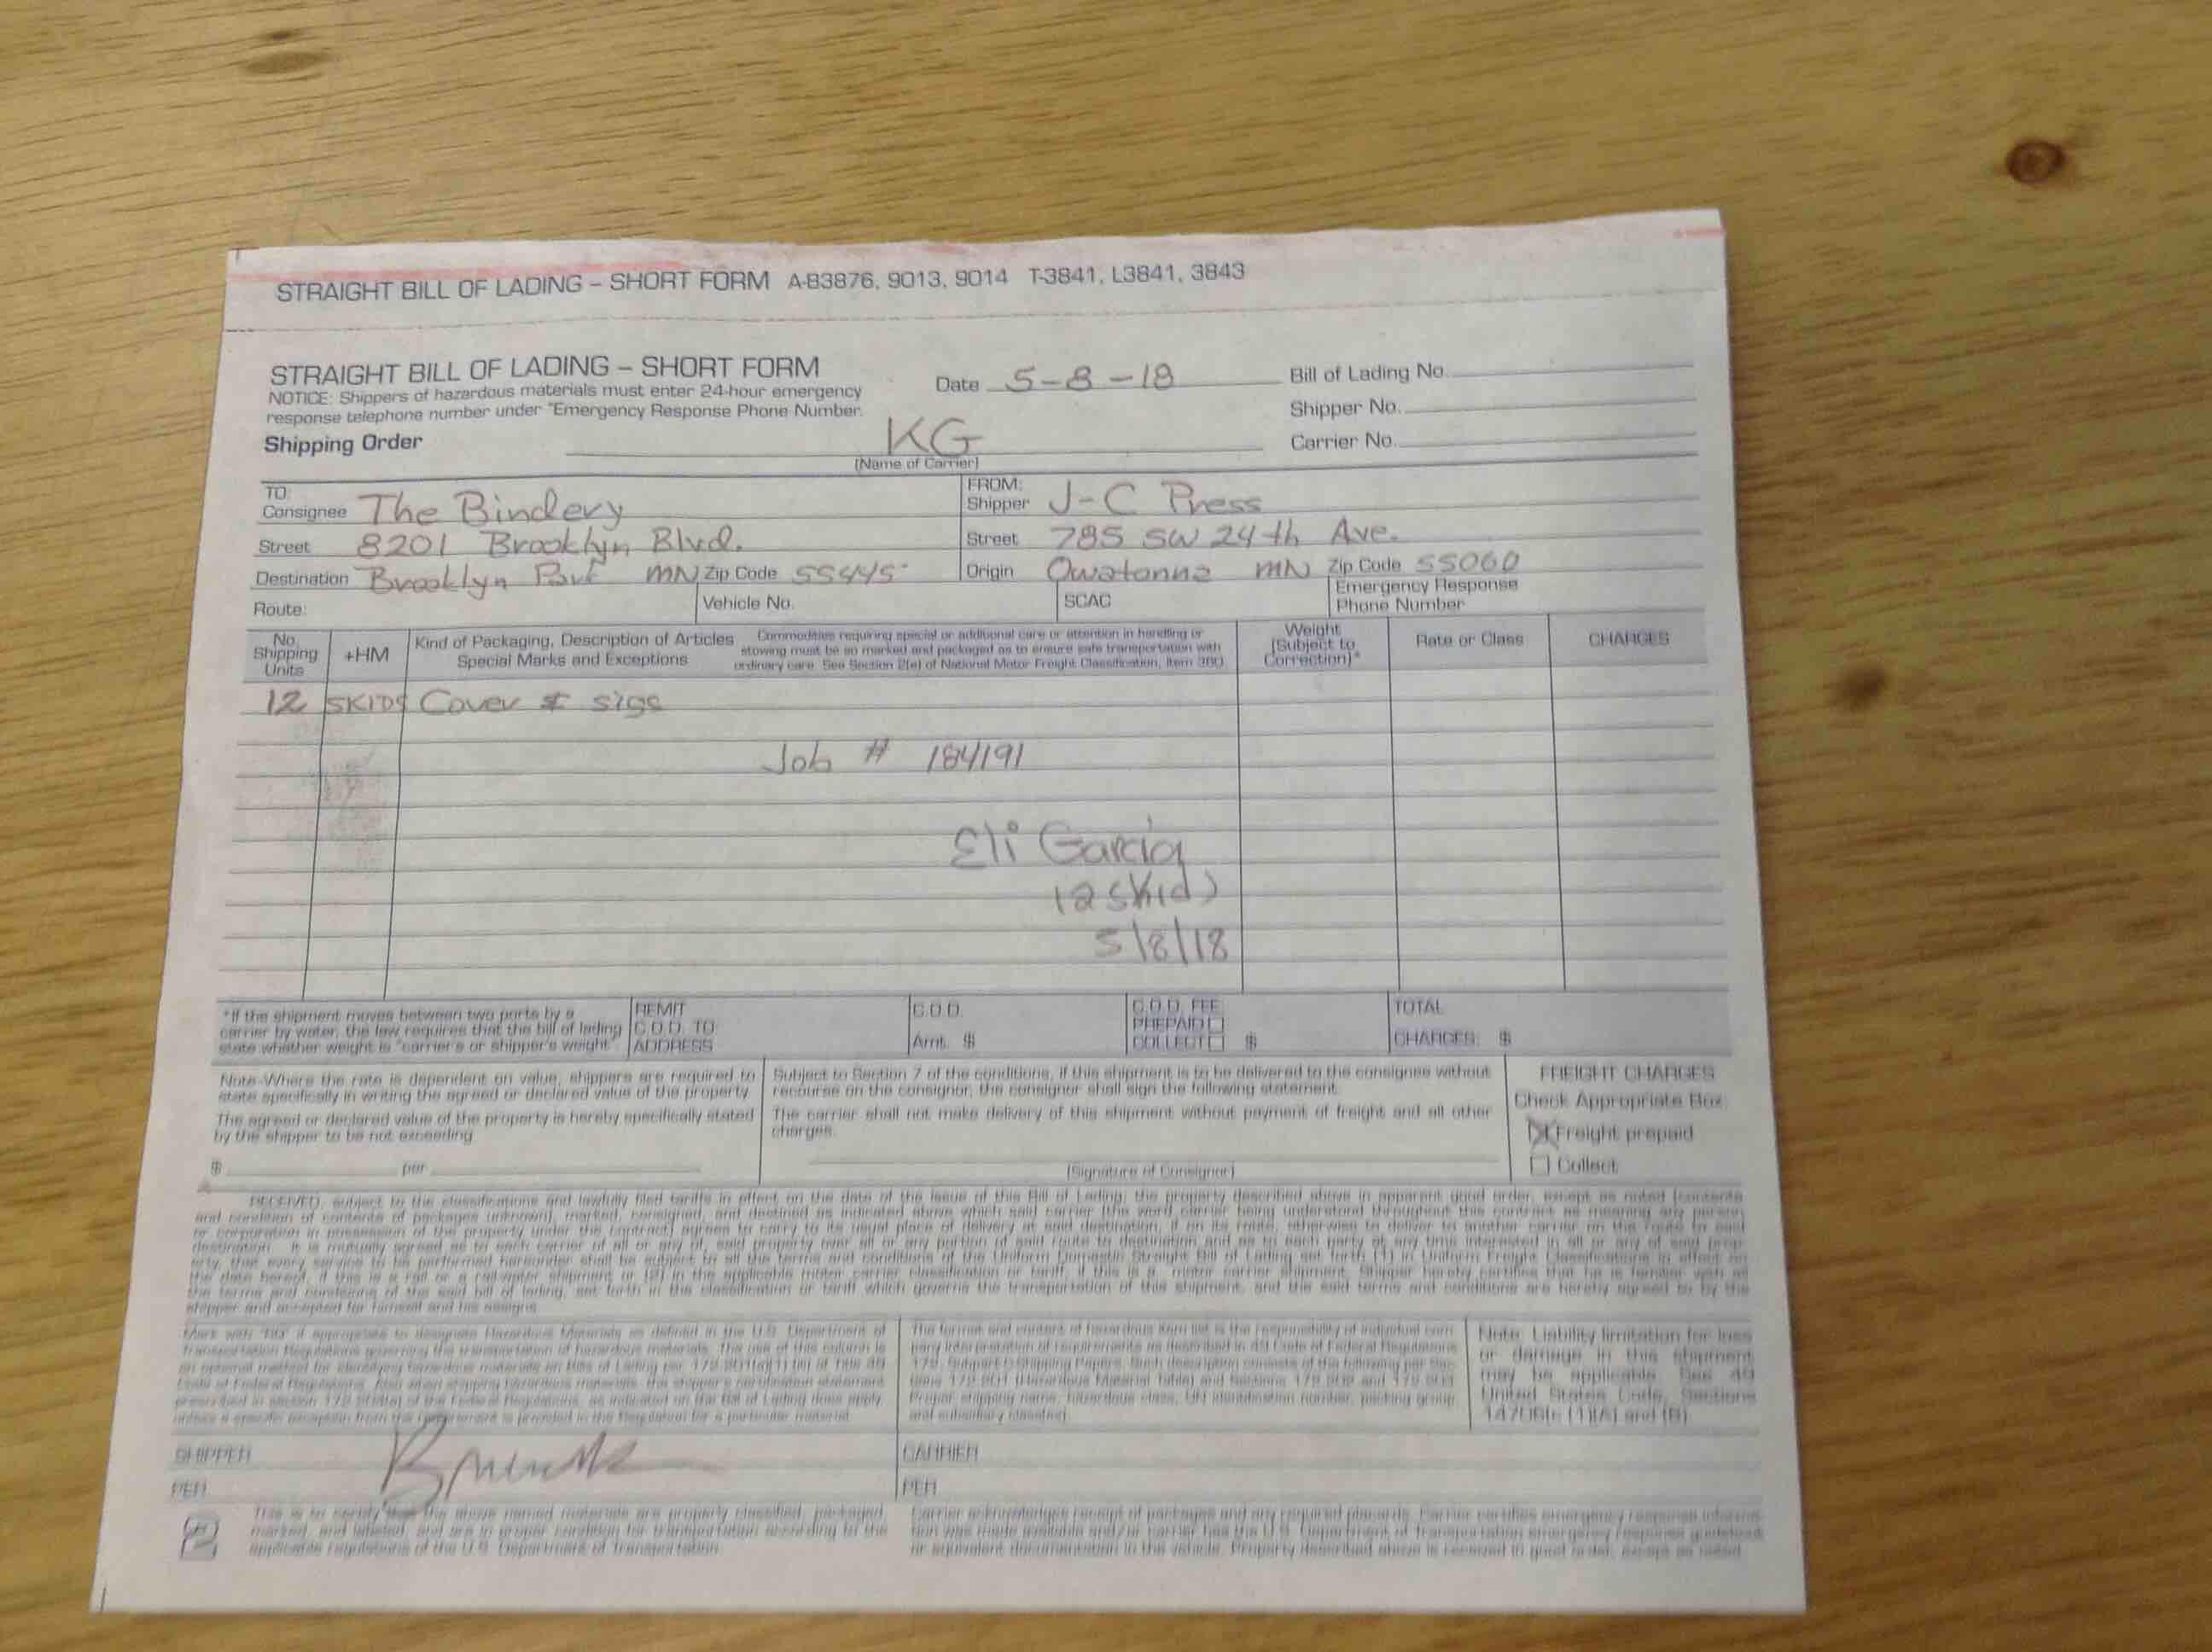 STRAIGHT BILL OF LADING – SHORT FORM A-83876, 9013, 9014 T-3841, L3841, 3843
STRAIGHT BILL OF LADING – SHORT FORM
NOTICE: Shippers of hazardous materials must enter 24-hour emergency
response telephone number under "Emergency Response Phone Number.
Date 5-8-18
Bill of Lading No.
Shipper No.
Carrier No.
Shipping Order
KG
(Name of Carrier)
TO:
Consignee The Bindery
Street 8201 Brooklyn Blvd.
Destination Brooklyn Park MN Zip Code 55445
FROM:
Shipper J-C Press
Street 785 SW 24th Ave.
Origin Owatonna MN Zip Code 55060
Route:
Vehicle No.
SCAC
Emergency Response
Phone Number
No.
Shipping
Units
+HM
Kind of Packaging, Description of Articles
Special Marks and Exceptions
Commodities requiring special or additional care or attention in handling or
stowing must be so marked and packaged as to ensure safe transportation with
ordinary care. See Section 2(e) of National Motor Freight Classification, Item 360
Weight
(Subject to
Correction)*
Rate or Class
CHARGES
12 SKIDS Cover & sigs
Job # 184191
Eli Garcia
12 skids
5/8/18
*If the shipment moves between two ports by a
carrier by water, the law requires that the bill of lading
state whether weight is "carrier's or shipper's weight"
REMIT
C.O.D. TO
ADDRESS
C.O.D.
Amt. $
C.O.D. FEE
PREPAID
COLLECT $
TOTAL
CHARGES: $
Note-Where the rate is dependent on value, shippers are required to
state specifically in writing the agreed or declared value of the property
The agreed or declared value of the property is hereby specifically stated
by the shipper to be not exceeding
$ per
Subject to Section 7 of the conditions, if this shipment is to be delivered to the consignee without
recourse on the consignor, the consignor shall sign the following statement
The carrier shall not make delivery of this shipment without payment of freight and all other
charges.
(Signature of Consignor)
FREIGHT CHARGES
Check Appropriate Box:
Freight prepaid
Collect
RECEIVED, subject to the classifications and lawfully filed tariffs in effect on the date of the issue of this Bill of Lading, the property described above in apparent good order, except as noted (contents
and condition of contents of packages unknown), marked, consigned, and destined as indicated above which said carrier (the word carrier being understood throughout this contract as meaning any person
or corporation in possession of the property under the contract) agrees to carry to its usual place of delivery at said destination, if on its route, otherwise to deliver to another carrier on the route to said
destination. It is mutually agreed as to each carrier of all or any of, said property over all or any portion of said route to destination and as to each party at any time interested in all or any of said prop-
erty, that every service to be performed hereunder shall be subject to all the terms and conditions of the Uniform Domestic Straight Bill of Lading set forth (1) in Uniform Freight Classifications in effect on
the date hereof, if this is a rail or a rail-water shipment or (2) in the applicable motor carrier classification or tariff, if this is a motor carrier shipment. Shipper hereby certifies that he is familiar with all
the terms and conditions of the said bill of lading, set forth in the classification or tariff which governs the transportation of this shipment, and the said terms and conditions are hereby agreed to by the
shipper and accepted for himself and his assigns
Note: Liability limitation for loss
or damage in this shipment
may be applicable. See 49
United States Code, Sections
SHIPPER
PER
CARRIER
PER
This is to certify that the above named materials are properly classified, packaged,
marked, and labeled, and are in proper condition for transportation according to the
applicable regulations of the U.S. Department of Transportation.
Carrier acknowledges receipt of packages and any required placards. Carrier certifies emergency response informa-
tion was made available and/or carrier has the U.S. Department of Transportation emergency response guidebook
or equivalent documentation in the vehicle. Property described above is received in good order, except as noted.
2